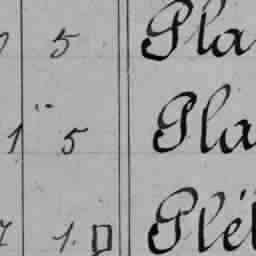 5 Pla
1 5 Pla
1. Plé